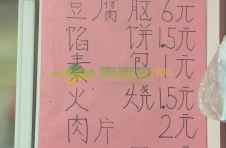 豆腐脑 6元
馅饼 1.5元
素包 1元
火烧 1.5元
肉片 2元